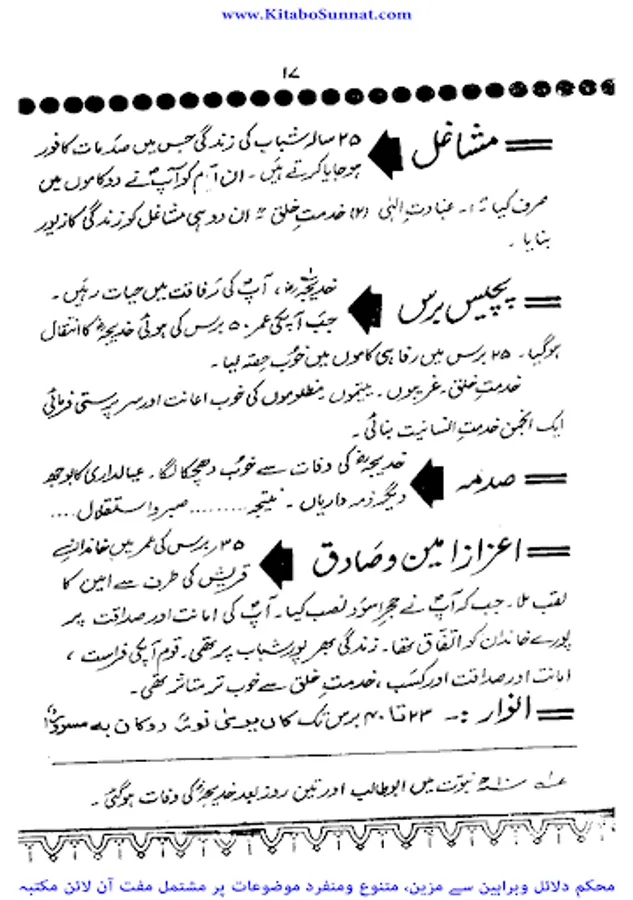 www.KitaboSunnat.com
۱۷
مشاغل
۲۵ سالہ شباب کی زندگی جس میں صدمات کافور
ہوجایا کرتے ہیں۔ ان ایام کو آپؐ نے دو کاموں میں
صرف کیا (۱)۔ عبادتِ الٰہی (۲) خدمتِ خلق ان دو ہی مشاغل کو زندگی کا زیور
بنایا۔
پچیس برس
خدیجہؓ، آپؐ کی رفاقت میں حیات رہیں۔
جب آپکی عمر ۵۰ برس کی ہوئی خدیجہؓ کا انتقال
ہوگیا۔ ۲۵ برس میں رفاہی کاموں میں خوب حصہ لیا۔
خدمتِ خلق۔ غریبوں۔ یتیموں مظلوموں کی خوب اعانت اور سرپرستی فرمائی
ایک انجمن خدمتِ انسانیت بنائی۔
صدمہ
خدیجہؓ کی وفات سے خوب دھچکا لگا۔ عیالداری کا بوجھ
دیگر ذمہ داریاں۔ نتیجہ........ صبر و استقلال....
اعزاز امین و صادق
۳۵ برس کی عمر میں خاندانِ
قریش کی طرف سے امین کا
لقب ملا۔ جب کہ آپؐ نے حجرِ اسود نصب کیا۔ آپؐ کی امانت اور صداقت پر
پورے خاندان کو اتفاق تھا۔ زندگی بھر پور شباب پر تھی۔ قوم آپکی فراست،
امانت اور صداقت اور کسب، خدمتِ خلق سے خوب تر متاثر تھی۔
انوار :- ۲۳ تا ۴۰ برس تک کان
۱۰ نبوت میں ابوطالب اور تین روز بعد خدیجہؓ کی وفات ہوگئی۔
محکم دلائل وبراہین سے مزین، متنوع ومنفرد موضوعات پر مشتمل مفت آن لائن مکتبہ